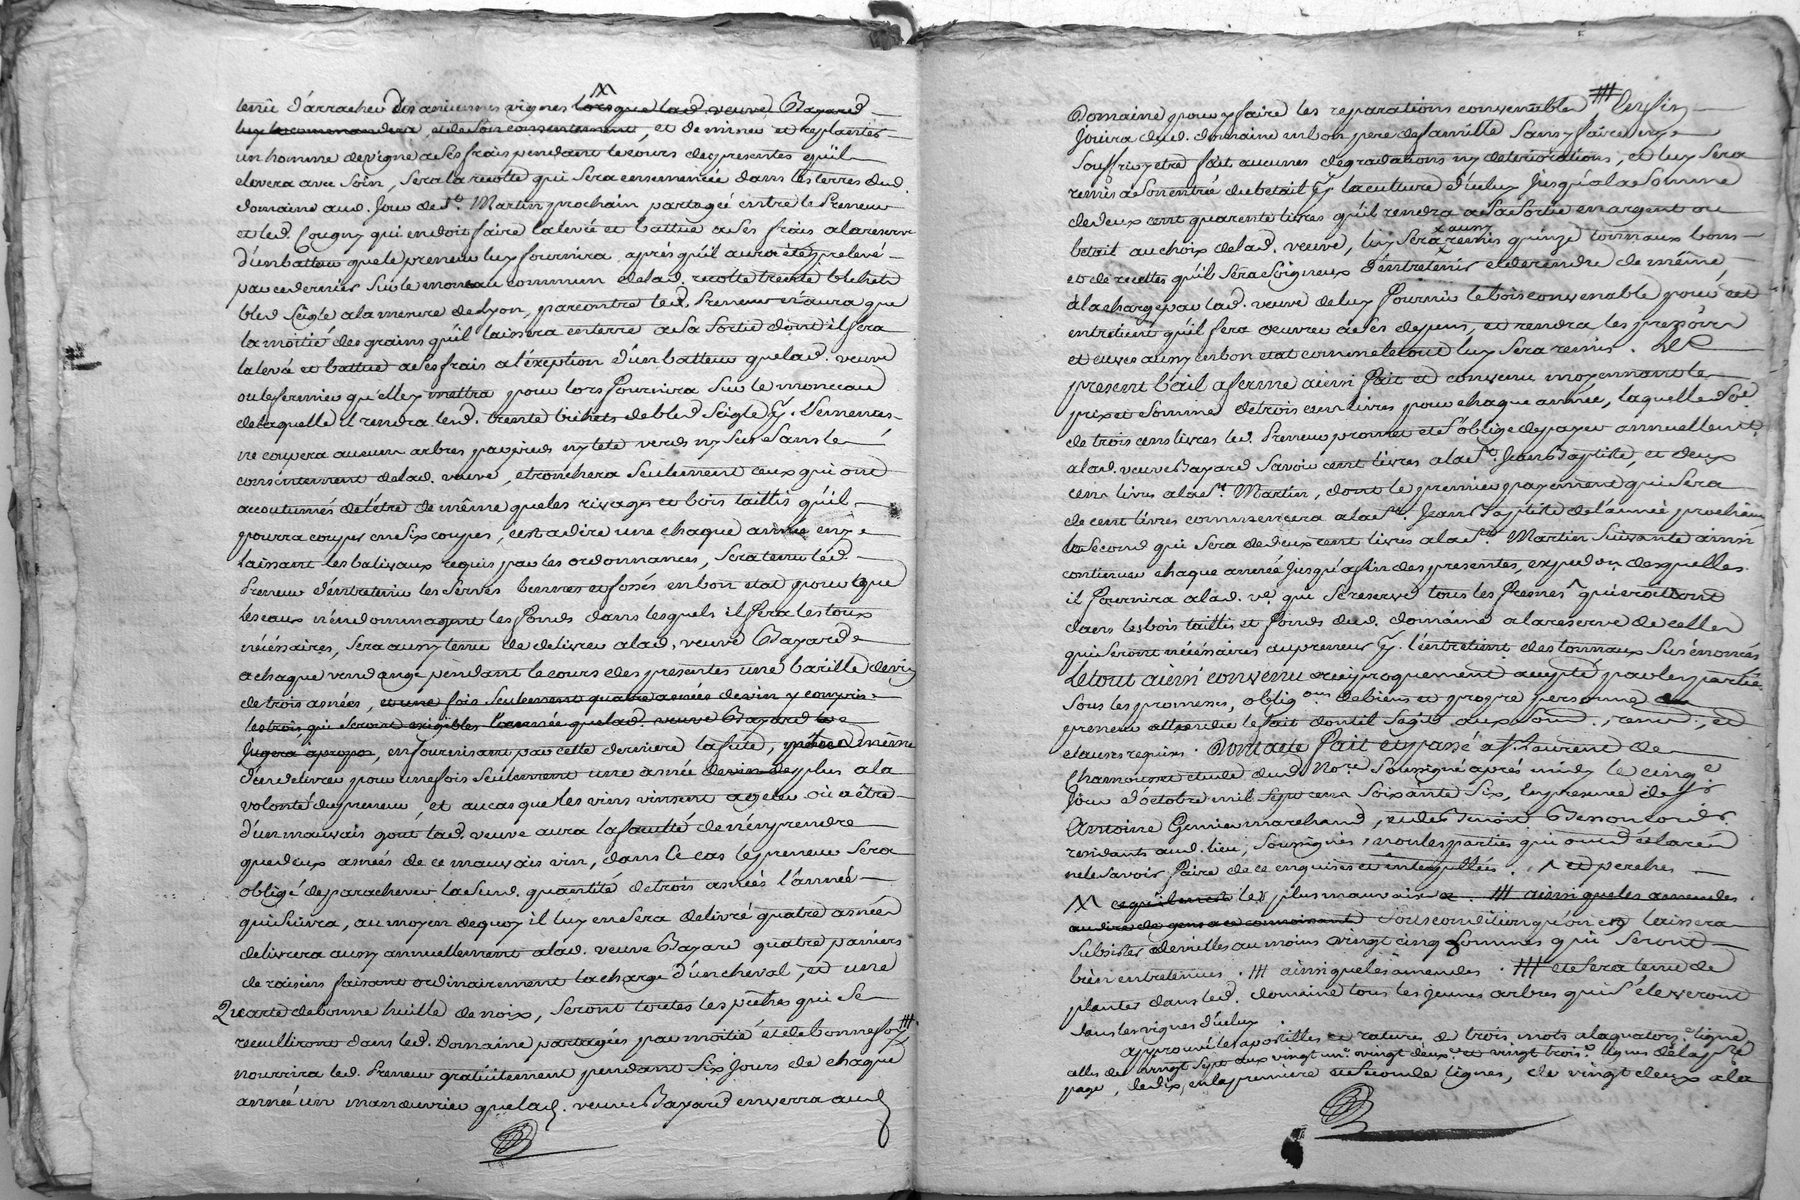 tenu d'arracher des anciennes vignes lorsque lad. veuve Bayard
luy le commandera, et de son consentement, et de miner et replanter
un homme de vigne a ses frais pendant le cours des presentes qu'il
elevera avec soin, sera la recolte qui sera ensemencée dans les terres dud.
domaine aud. jour de St. Martin prochain partagée entre le Preneur
et led. Cougny qui en doit faire la levée et battue a ses frais a la reserve
d'un batteur que le preneur luy fournira, aprés qu'il aura été prelevé
par ce dernier sur le monceau commun de lad. recolte trente bichets
bled seigle a la mesure de Lyon, par contre led. Preneur n'aura que
la moitié des grains qu'il laissera en terre a sa sortie dont il fera
la levé et battue a ses frais a l'exeption d'un batteur que lad. veuve
ou le fermier qu'elle y mettra pour lors fournira sur le monceau
de laquelle il rendra led. trente bichets de bled seigle
ne coupera aucuns arbres par pied ny tete verds ny secs sans le
consentement de lad. veuve, etronchera seulement ceux qui ont
accoutumés de l'étre de même que les rivages et bois taillis qu'il
pourra couper en six coupes, c'est a dire une chaque année en y
laissant les balivaux requis par les ordonnances, sera tenu led.
Preneur d'entretenir les serves biennes et fossés en bon etat pour que
les eaux n'endommagent les fonds dans lesquels il fera les tous
nécéssaires, sera aussy tenu de delivrer a lad. veuve Bayard
a chaque vendange pendant le cours des presentes une barille de vin
de trois asnées, et une fois seulement quatre asnées de vin y compris
les trois qui seront exigibles l'année que lad. veuve Bayard le
jugera apropos, en fournissant par cette derniere la futé, même
d'en delivrer pour une fois seulement une asnée de vin de plus a la
volonté du preneur, et au cas que les vins vinssent a geler ou a être
d'un mauvais gout lad. veuve aura la faculté de n'en prendre
que deux asnées de ce mauvais vin, dans ce cas le preneur sera
obligé de parachever la susd. quantité de trois asnées l'année
qui suivra, au moyen de quoy il luy en sera delivré quatre asnées
delivrera aussy annuellement a lad. veuve Bayard quatre paniers
de raisins faisant ordinairement la charge d'un cheval, et une
Quarte de bonne huille de noix, seront toutes les pêches qui se
recuilliront dans led. Domaine partagées par moitié et de bonne foy
nourrira led. Preneur gratuitement pendant six jours de chaque
année un manoeuvrier que lad. veuve Bayard enverra aud.
Domaine pour y faire les reparations convenables
Jouira dud. domaine en bon pere de famille sans y faire ny
souffrir y etre fait aucunes dégradations ny deteriorations, et luy sera
remis a son entrée du betail la culture d'iceluy jusqu'a la somme
de deux cent quarente livres qu'il rendra a sa sortie en argent ou
betail au choix de lad. veuve, luy sera aussy remis quinze tonnaux bons
et de recettes qu'il sera soigneux d'entretenir et de rendre de même,
a la charge par lad. veuve de luy fournir le bois convenable pour cet
entretient qu'il fera oeuvrer a ses depens, et rendra les pressoir
et cuves aussy en bon etat comme le tout luy sera remis. Le
present bail a ferme ainsi fait et convenu moyennant le
prix et somme de trois cens livres pour chaque année, laquelle
de trois cens livres led. Preneur promet et s'oblige de payer annuellemt.
a lad. veuve Bayard savoir cent livres a la St. Jean Baptiste, et deux
cens livres a la St. Martin, dont le premier payement qui sera
de cent livres commencera a la St. Jean Baptiste de l'année prochaine
le second qui sera de deux cent livres a la St. Martin suivante ainsi
continuer chaque année jusqu'a fin des presentes, expedon. desquelles
il fournira a lad. ve. qui se reserve tous les fresnes qui croitront
dans les bois taillis et fonds dud. domaine a la reserve de celles
qui seront nécéssaires au preneur l'entretient des tonnaux sus énoncés
Le tout ainsi convenu reciproquement accepté par les parties
sous les promesses, obligons. de biens et propre personne
preneur attendu le fait dont il s'agit aux soumd., renond., et
clauses requises. Dont acte fait et passé a St. Laurent de
Chamousset etude dud. Nore. Soussigné aprés midy le cinqe.
jour d'octobre mil sept cens soixante six, en presence de Sr.
Antoine marchand, et de Benoit
residants aud. lieu, soussignés, non les parties qui ont déclaré
ne le savoir faire de ce enquises et interpellées. et perches
les plus mauvais ainsi que les amendes
au dire de gens a ce connaissants sous condition qu'on en laissera
subsister de vielles au moins vingt cinq hommes qui seront
bien entretenues. ainsi que les amendes. et sera tenu de
planter dans led. domaine tous les jeunes arbres qui s'éleveront
dans les vignes d'iceluy
approuvé les apostilles et rature de trois mots a la quatorze. ligne
celles des vingt sept aux vingt un. vingt deux. et vingt trois. lignes de la pre.
page, de dix, en la premiere et seconde lignes, de vingt deux a la